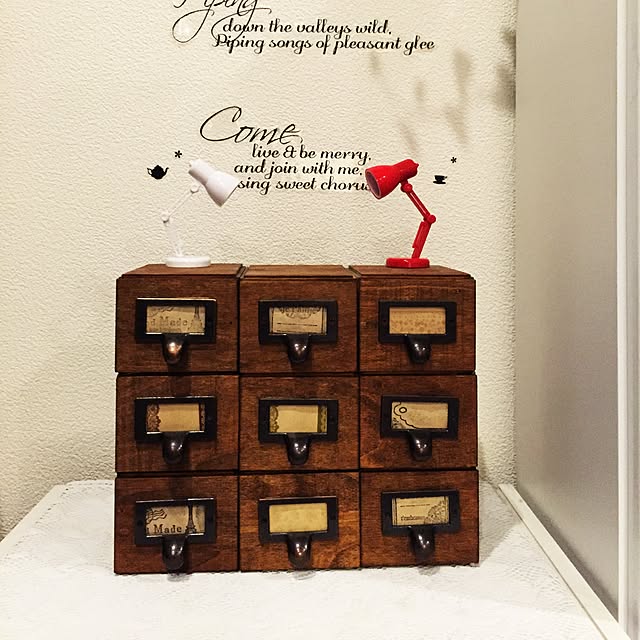 Piping
down the valleys wild,
Piping songs of pleasant glee
Come,
live & be merry,
and join with me,
sing sweet chorus
Made
Made